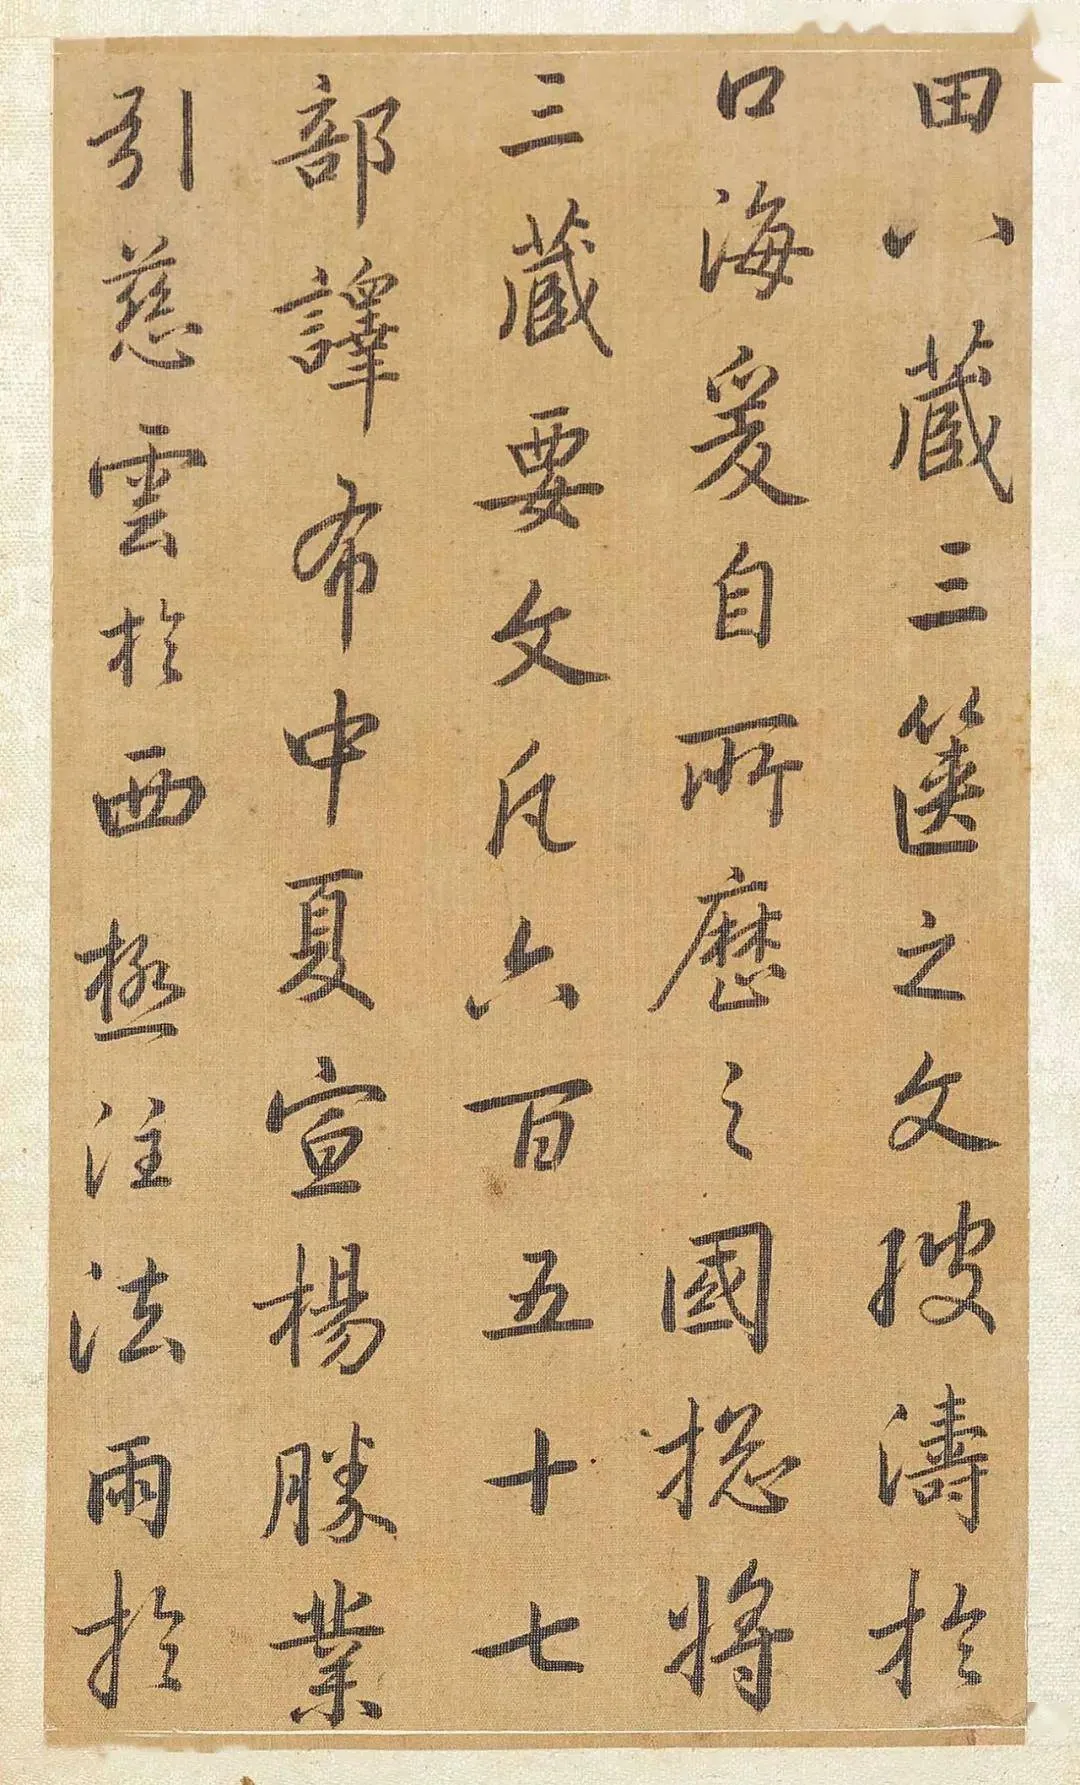 田八藏三篋之文搜濤於
口海爰自所歷之國揔將
三藏要文凡六百五十七
部譯布中夏宣楊勝業
引慈雲於西極注法雨於